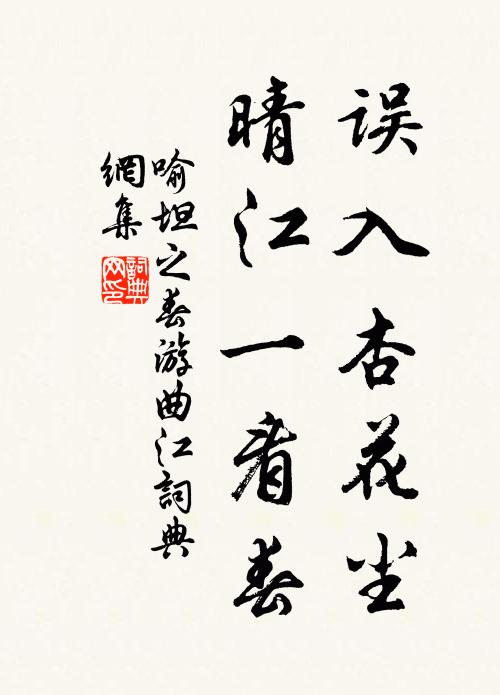 误入杏花尘
晴江一看春
喻坦之春游曲江詞典
網集
詞典
网印